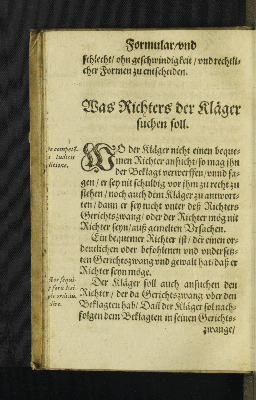 Formular/vnd
schlecht/ ohn geschwindigkeit / vnd rechtli-
cher Formen zu entscheiden.
Was Richters der Kläger
suchen soll.
WO der Kläger nicht einen beque-
men Richter ansucht/ so mag jhn
der Beklagt verwerffen/ vnnd sa-
gen / er sey nit schuldig vor jhm zu recht zu
stehen / noch auch dem Kläger zu antwor-
ten / dann er sey nicht vnter deß Richters
Gerichtszwang/ oder der Richter mög nit
Richter seyn/ auß gemelten Vrsachen.
Ein bequemer Richter ist/ der einen or-
dentlichen oder befohlenen vnd vndersetz-
ten Gerichtszwang vnd gewalt hat/ daß er
Richter seyn möge.
Der Kläger soll auch ansuchen den
Richter / der da Gerichtszwang vber den
Beklagten hab/ Dañ der Kläger sol nach-
folgen dem Beklagten in seinen Gerichts-
zwange/